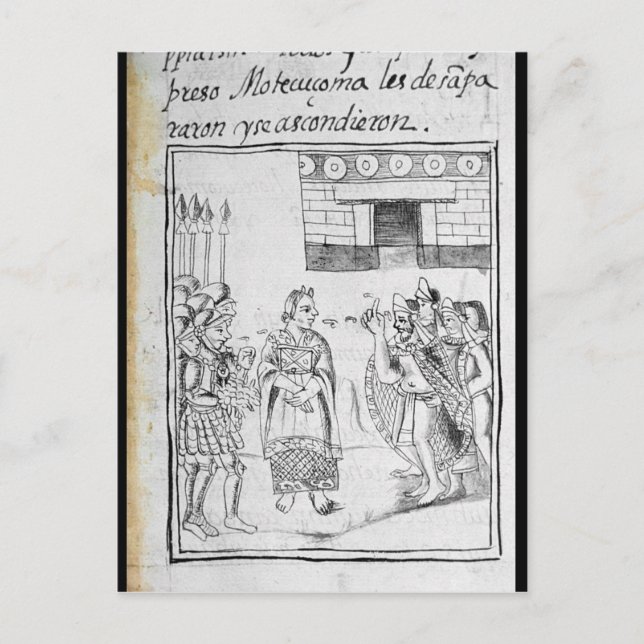 preso Motecuçoma les desãpa
raron yse ascondieron.